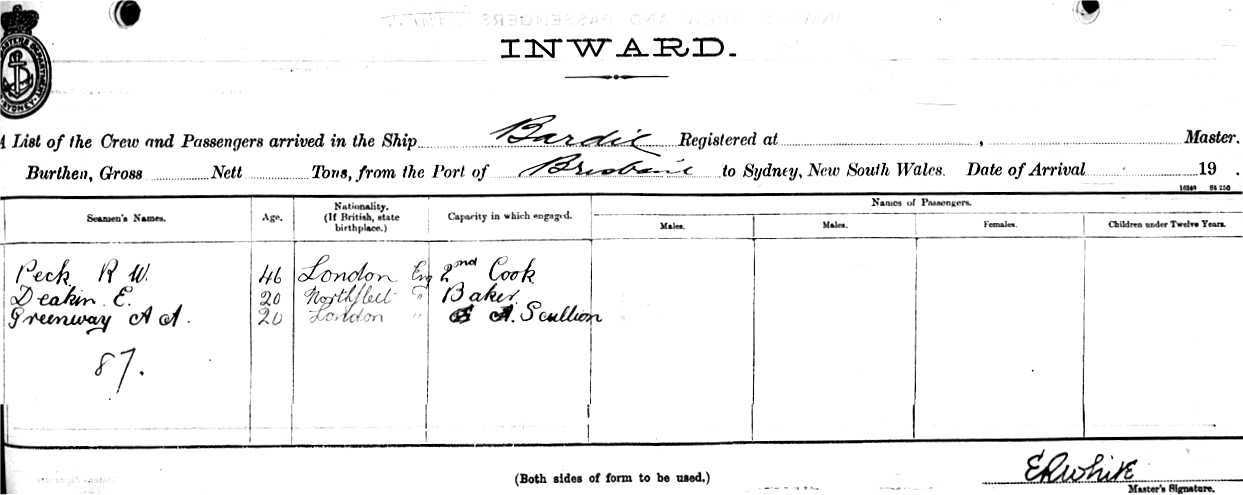 INWARD.
A List of the Crew and Passengers arrived in the Ship Bardic Registered at , Master.
Burthen, Gross Nett Tons, from the Port of Brisbane to Sydney, New South Wales. Date of Arrival 19 .
Seamen's Names. Age. Nationality. (If British, state birthplace.) Capacity in which engaged. Names of Passengers.
Males. Males. Females. Children under Twelve Years.
Peck R W. 46 London Eng 2nd Cook
Deakin E. 20 Northfleet " Baker
Greenway A A. 20 London " A. Scullion
87.
(Both sides of form to be used.)
ERWhite
Master's Signature.